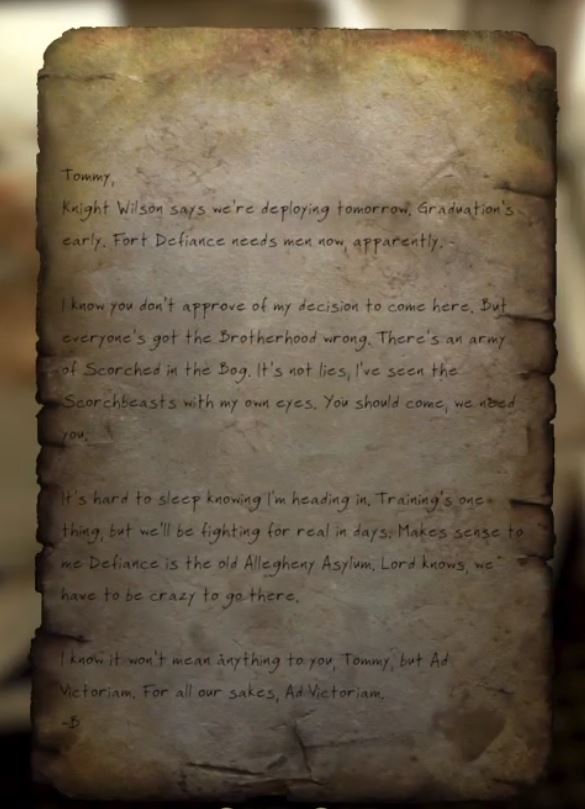 Tommy,
Knight Wilson says we're deploying tomorrow. Graduation's
early. Fort Defiance needs men now, apparently.
I know you don't approve of my decision to come here. But
everyone's got the Brotherhood wrong. There's an army
of Scorched in the Bog. It's not lies, I've seen the
Scorchbeasts with my own eyes. You should come, we need
you.
It's hard to sleep knowing I'm heading in. Training's one
thing, but we'll be fighting for real in days. Makes sense to
me Defiance is the old Allegheny Asylum. Lord knows, we
have to be crazy to go there.
I know it won't mean anything to you, Tommy, but Ad
Victoriam. For all our sakes, Ad Victoriam.
-B